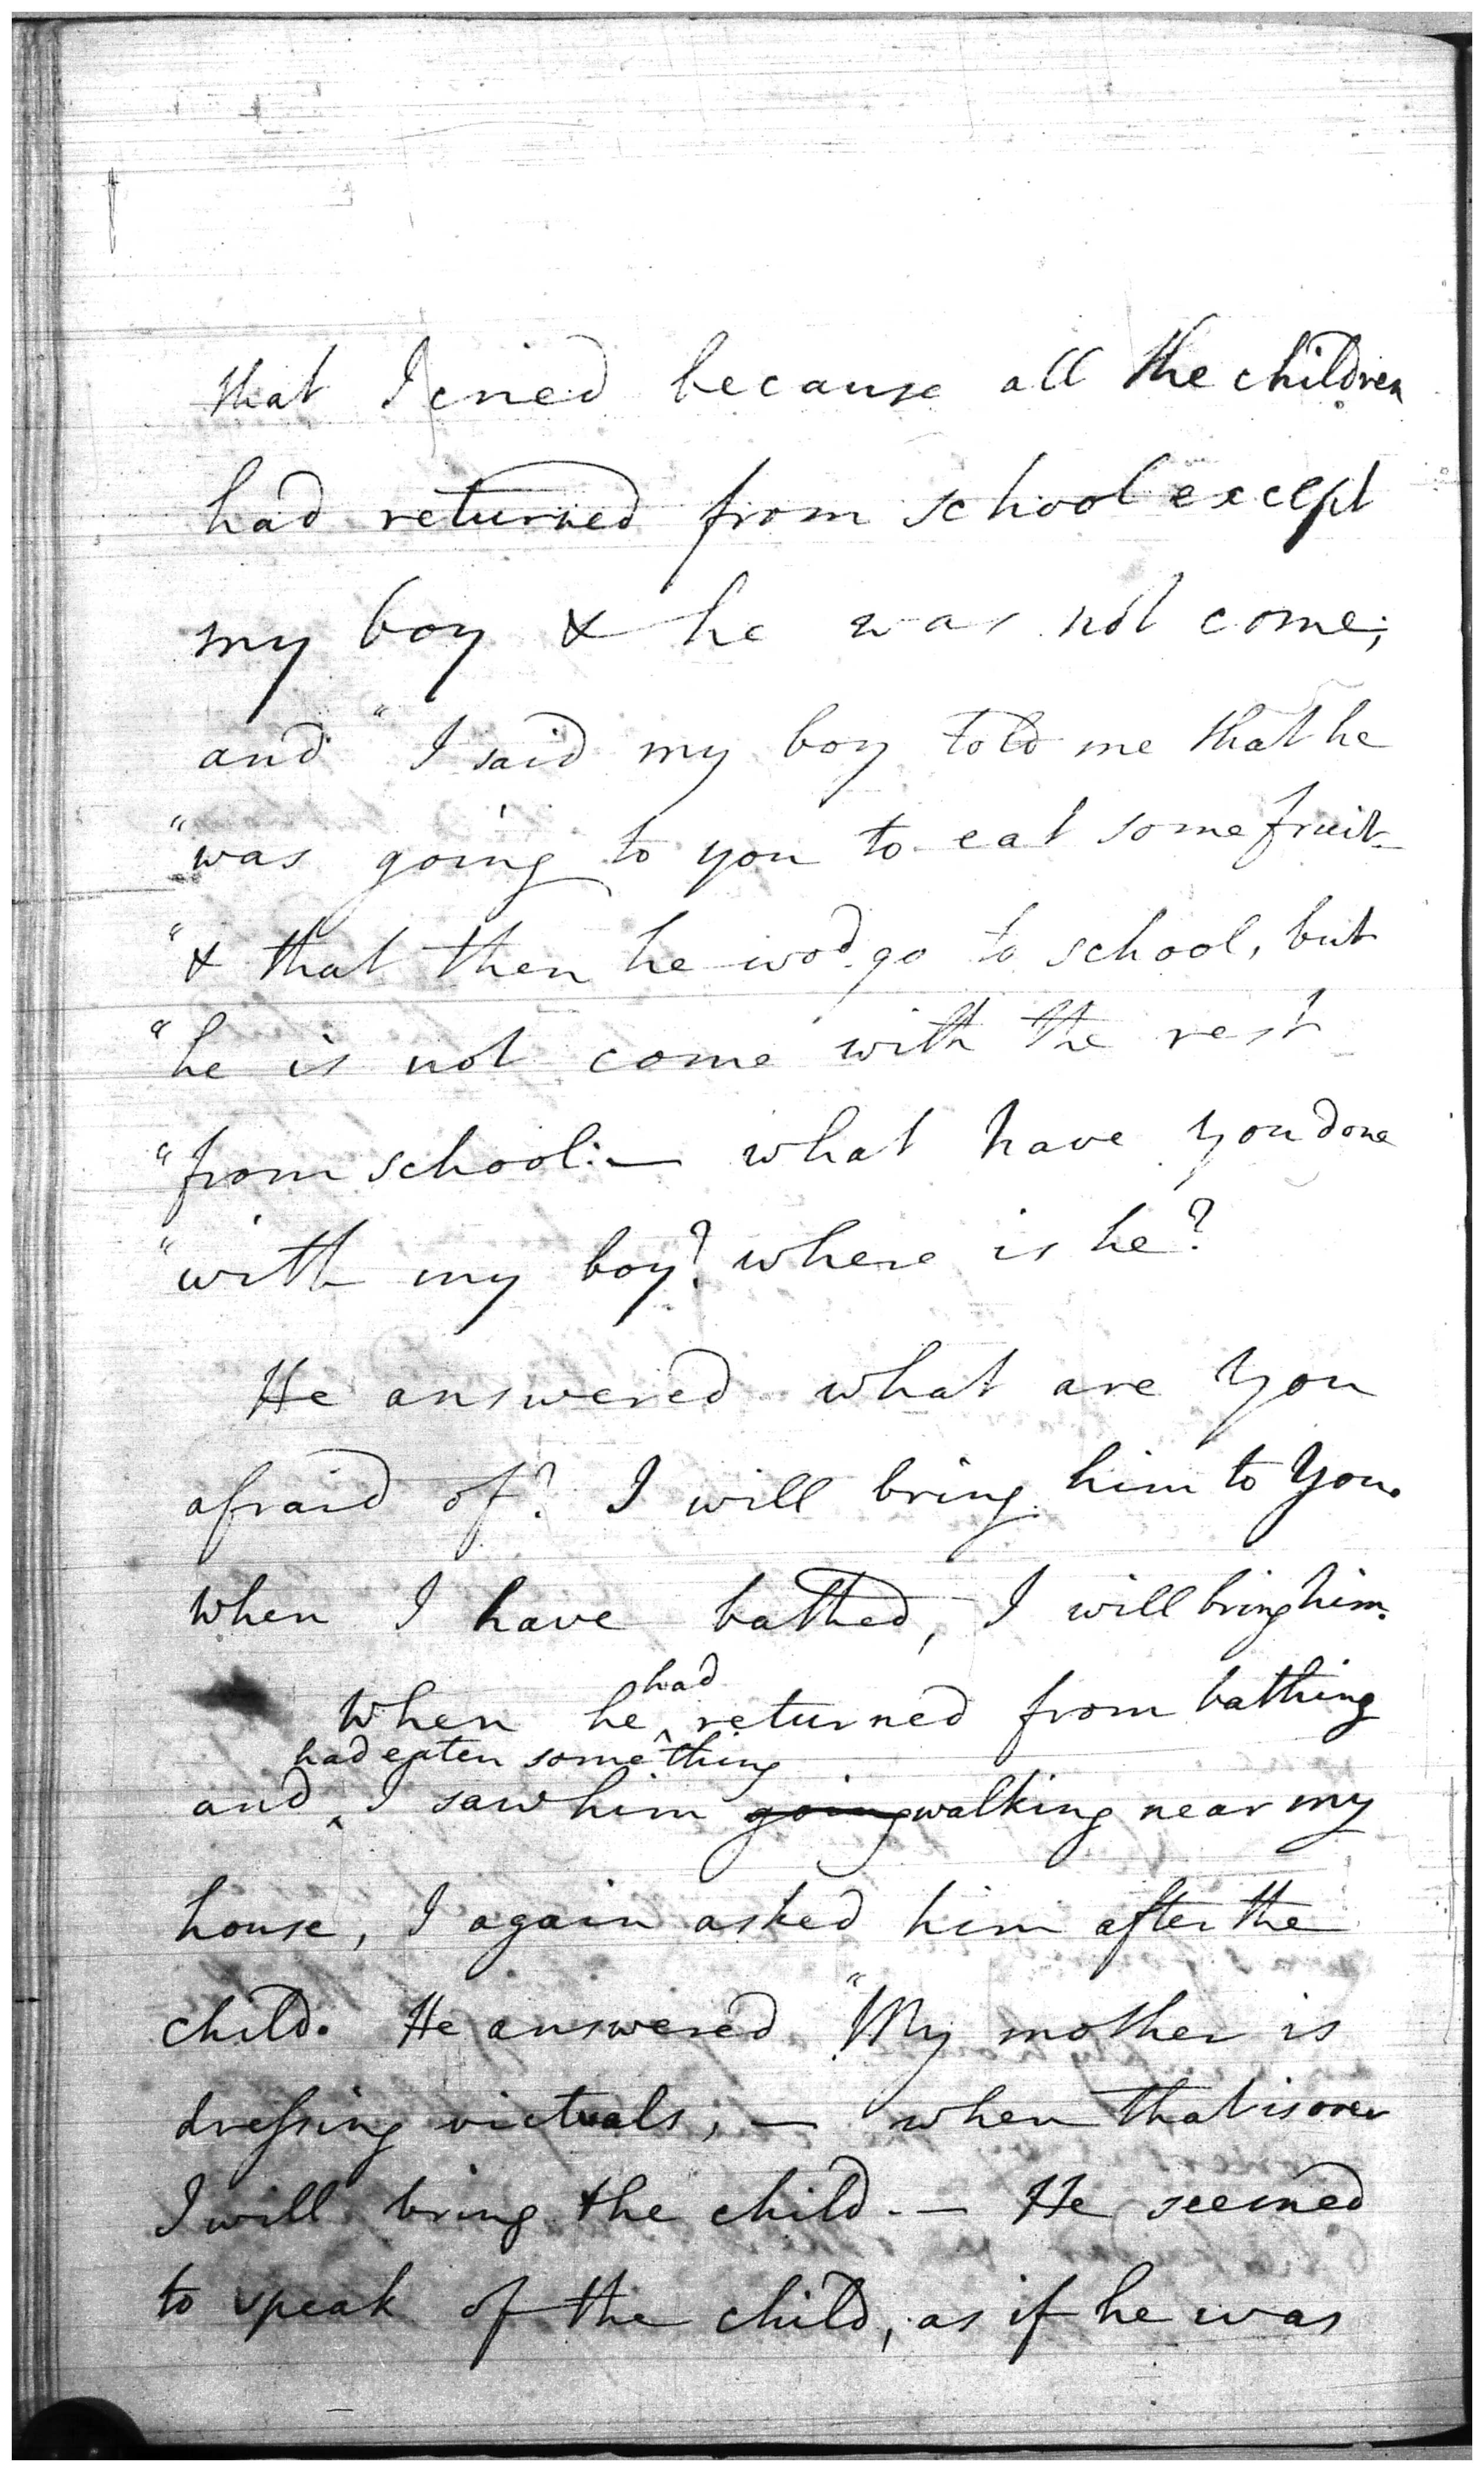 that I cried because all the children
had returned from school except
my boy & he was not come;
and "I said my boy told me that he
"was going to you to eat some fruit
"& that then he wod. go to school, but
"he is not come with the rest
"from school:— what have you done
"with my boy? where is he?
He answered what are You
afraid of? I will bring him to You.
When I have bathed, I will bring him.
had
When he ^ returned from bathing
had eaten something
and ^ I saw him going walking near my
house, I again asked him after the
child. He answered "My mother is
dressing victuals, — when that is over
I will bring the child.— He seemed
to speak of the child, as if he was